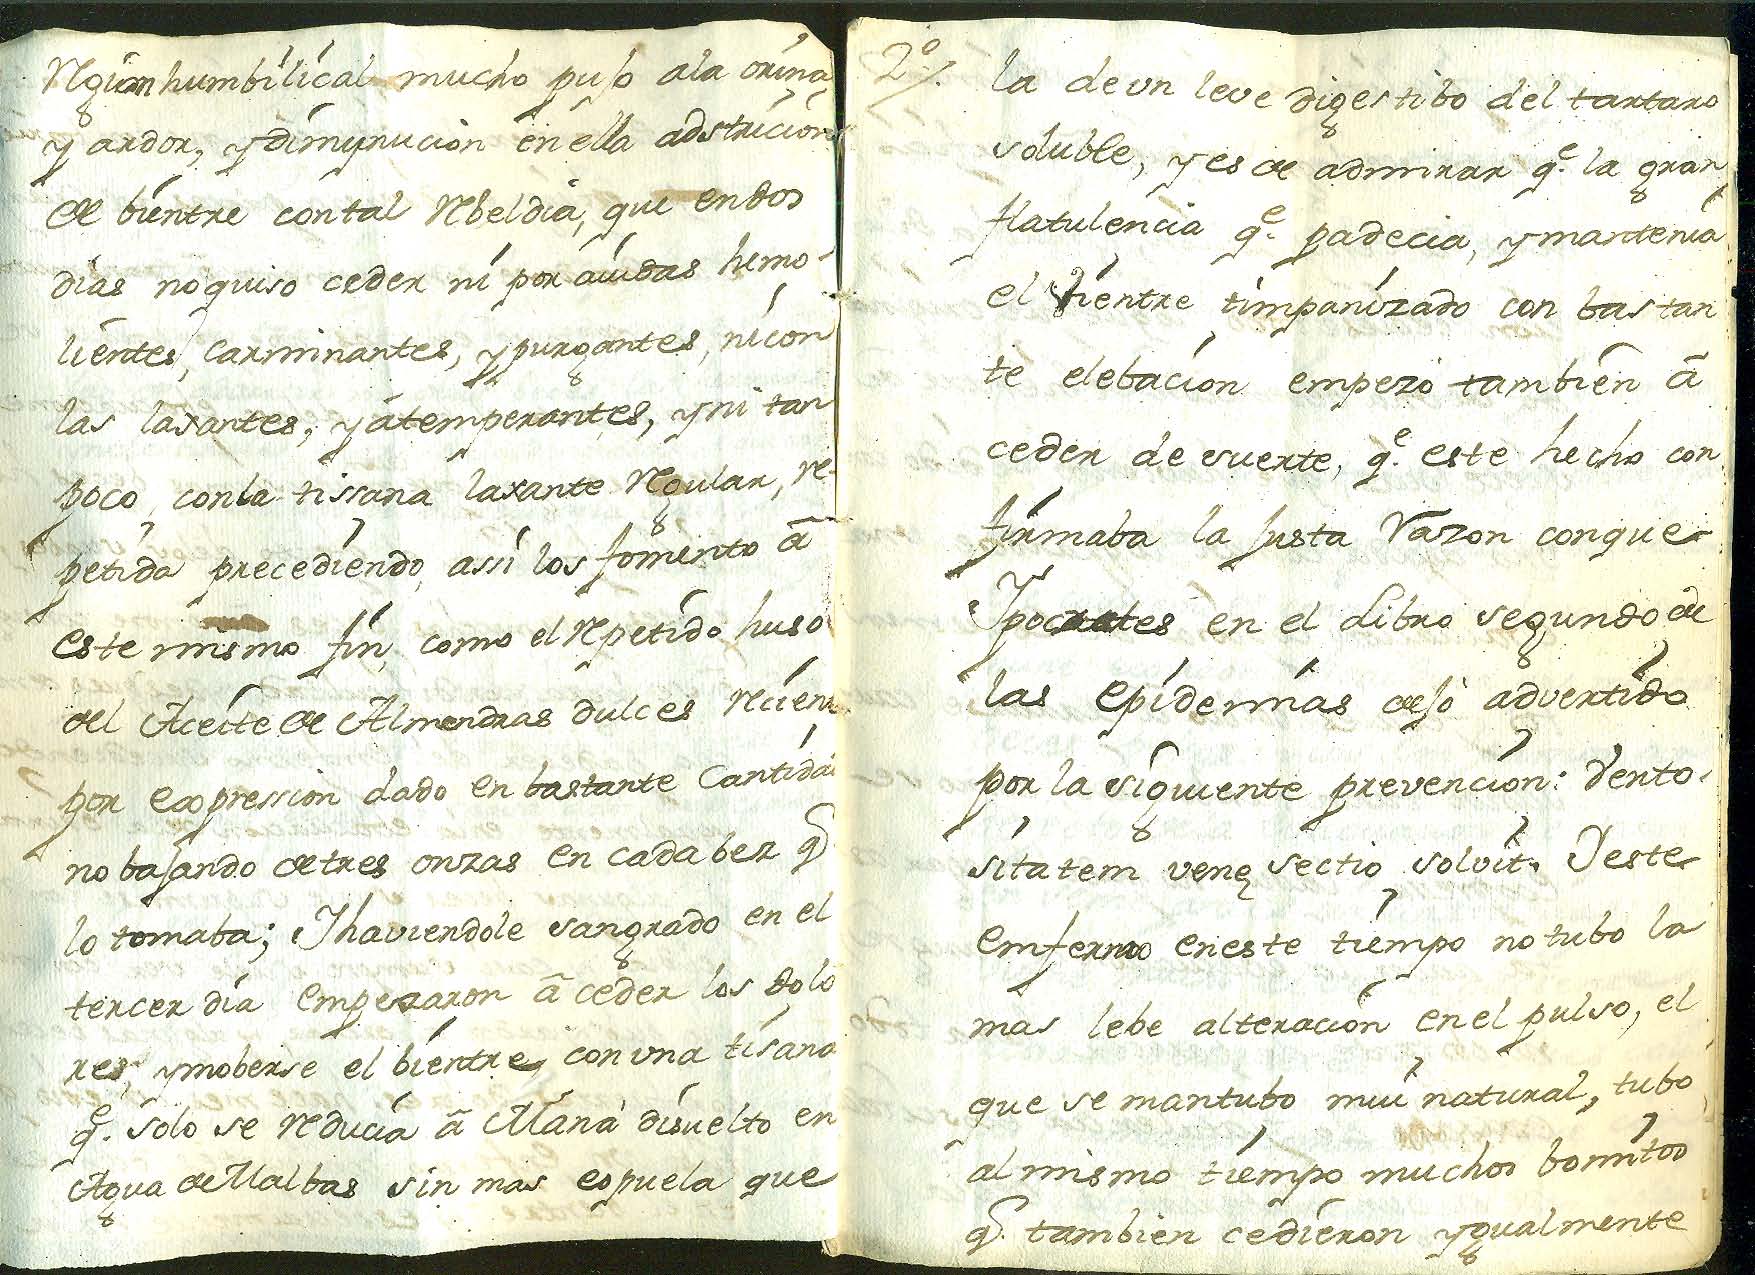 Rgion humbilical mucho pujo ala orina,
y ardor, y dimynucion en ella adstricion
de bientre contal Rbeldia, que en dos
dias no quiso ceder ni por aiudas hemo-
lientes, carminantes, y purgantes, ni con
las laxantes, y atemperantes, y ni tan
poco, con la tissana laxante Rgular, re-
petida precediendo, assi los fomento â
este mismo fin, como el Rpetido huso
del Aceite de Almendras dulces Rcien
por expression dado en bastante Cantidad
no bajando de tres onzas en cada bez q.
lo tomaba; Y haviendole sangrado en el
tercer dia empezaron â ceder los dolo
res, y moberse el bientre, con vna tisana
q.e solo se Rducia â Maná disuelto en
Agua de Malbas sin mas espuela que
2.º
la de vn leve digestibo del tartaro
soluble, y es de admirar q.e la gran
flatulencia q.e padecia, y mantenia
el Vientre timpanizado con bastan
te elebacion empezo tambien â
ceder de suerte, q.e este hecho con
firmaba la Justa Razon conque
Ypocrates en el Libro segundo de
las Epidemias dejò advertido
por la siguiente prevencion: Vento-
sitatem venę sectio solvit. Y este
emfermo en este tiempo no tubo la
mas lebe alteracion en el pulso, el
que se mantubo mui natural, tubo
al mismo tiempo muchos bomitos
q. tambien cedieron ygualmente